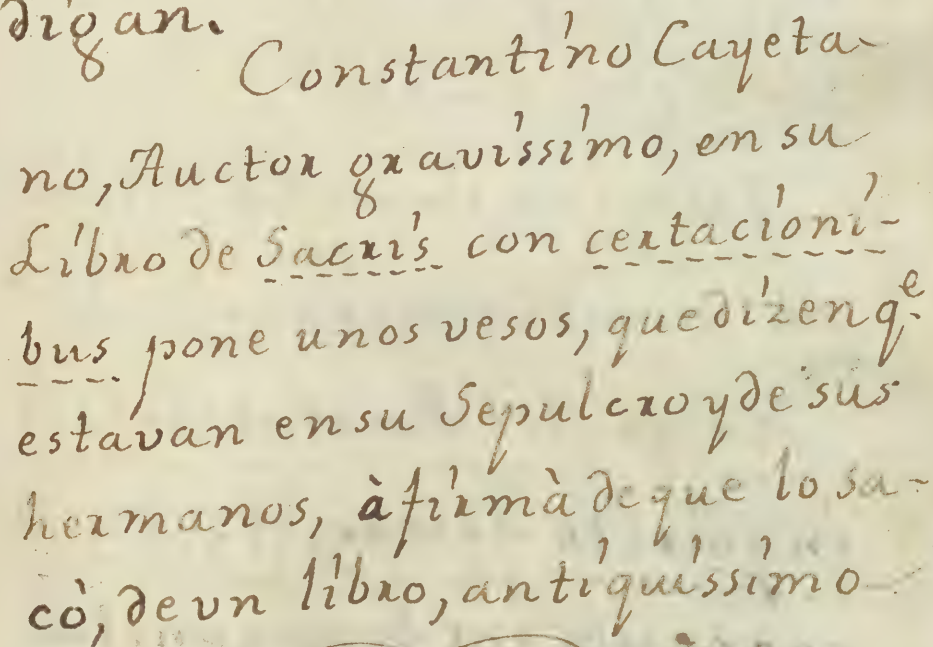 digan.
Constantino Cayeta-
no, Auctor gravissimo, en su
Libro de Sacris con certacioni-
bus pone unos vesos, que dizen q.e
estavan en su Sepulcro y de sus
hermanos, àfirmà de que lo sa-
cò, de vn libro, antiquissimo